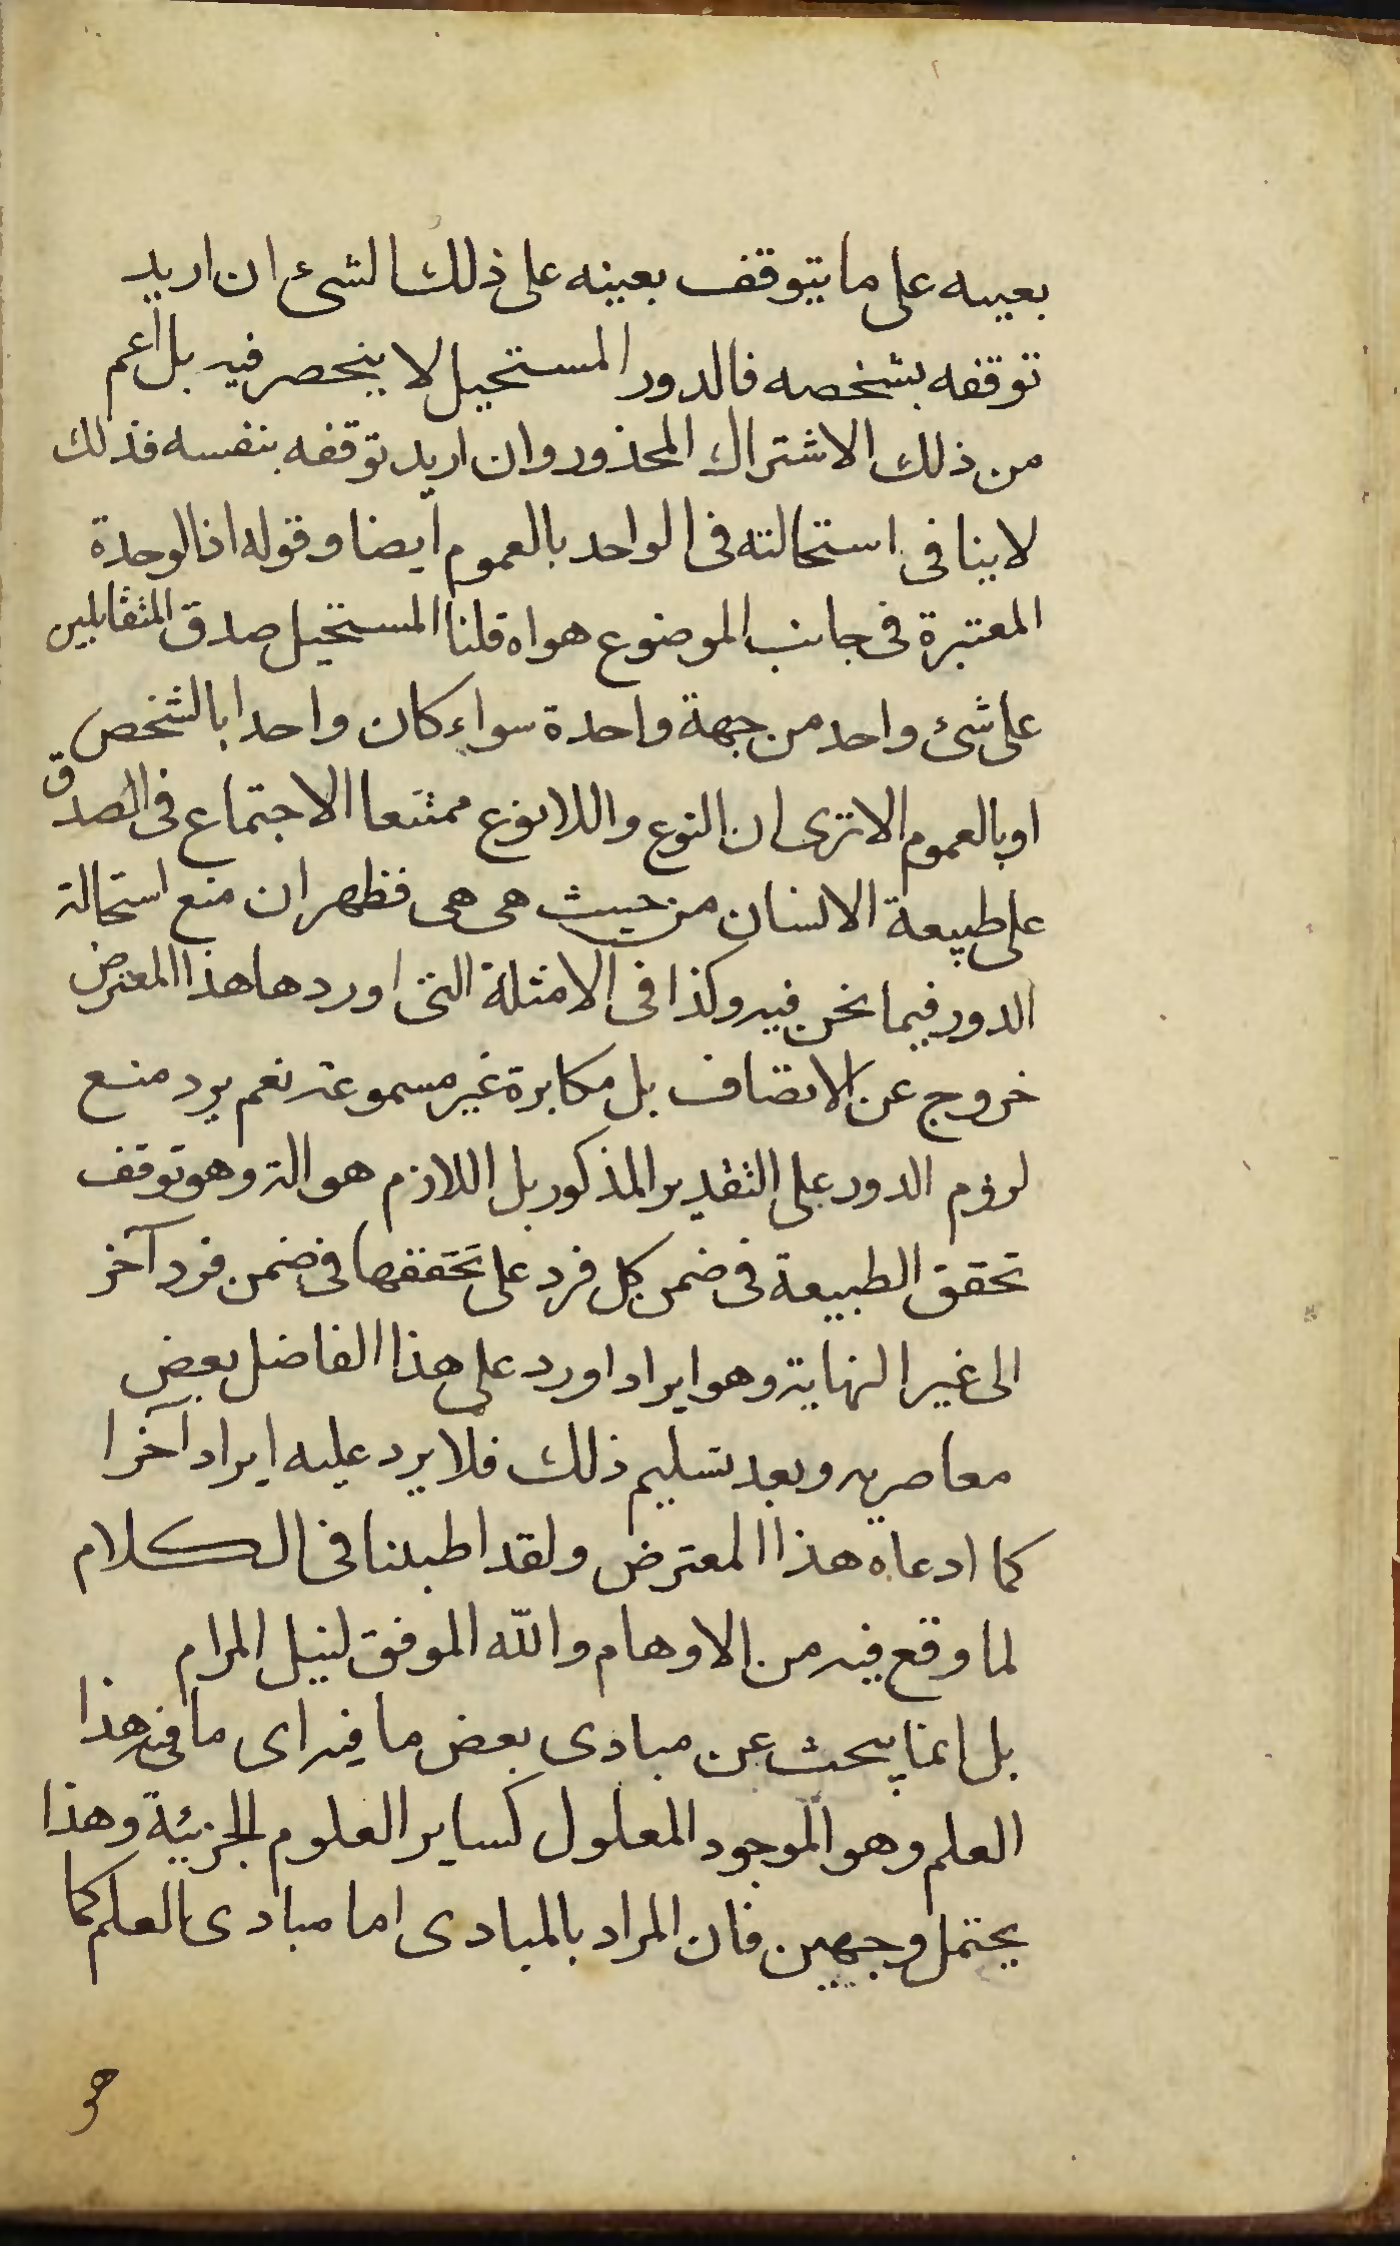 بعينه على ما يتوقف بعينه على ذلك الشئ ان اريد
توقفه بشخصه فالدور المستحيل لا ينحصر فيه بل اعم
من ذلك الاشتراك المحذور وان اريد توقفه بنفسه فذلك
لا ينافى استحالته فى الواحد بالعموم ايضا وقوله اذ الوحدة
المعتبرة فى جانب الموضوع هو اه قلنا المستحيل صدق المتقابلين
على شئ واحد من جهة واحدة سواء كان واحدا بالشخص
او بالعموم الا ترى ان النوع واللانوع ممتنعا الاجتماع فى الصدق
على طبيعة الانسان من حيث هى هى فظهر ان منع استحالة
الدور فيما نحن فيه وكذا فى الامثلة التى اوردها هذا المعترض
خروج عن الانصاف بل مكابرة غير مسموعة نعم يرد منع
لزوم الدور على التقدير المذكور بل اللازم هو التـ وهو توقف
تحقق الطبيعة فى ضمن كل فرد على تَحَققها فى ضمن فرد آخر
الى غير النهاية وهو ايراد اورد على هذا الفاضل بعض
معاصريه وبعد تسليم ذلك فلا يرد عليه ايراد آخر ا
كما ادعاه هذا المعترض ولقد اطبنا فى الكلام
لما وقع فيه من الاوهام والله الموفق لنيل المرام
بل انما يبحث عن مبادى بعض ما فيه اى ما فيه هذا
العلم وهو الموجود المعلول كساير العلوم الجزئية وهذا
يحتمل وجهين فان المراد بالمبادى اما مبادى العلم كما
هو